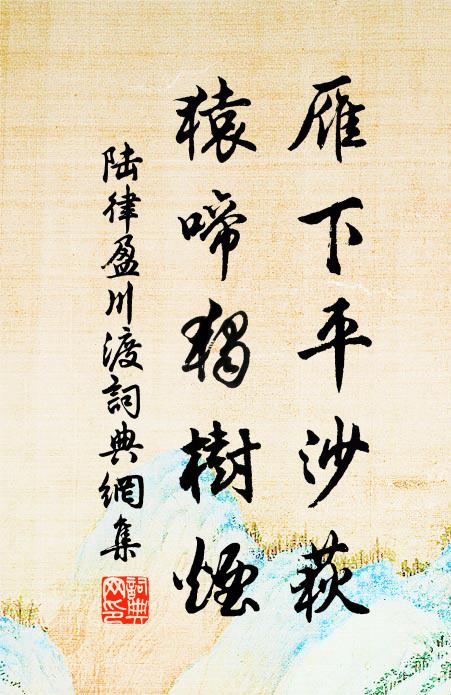 雁下平沙荻
猿啼獨樹煙
陆律盈川渡詞典網集
詞典網印